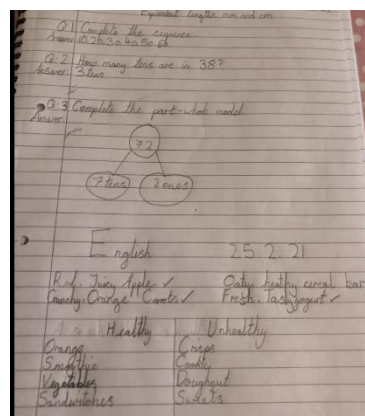 Equivalent lengths mm and cms
Q:1 Complete the sequence.
Answer: 10,20,30,40,50,60
Q:2 How many tens are in 38?
Answer: 3 tens
Q:3 Complete the part-whole model
Answer:
72
7 tens 2 ones
English 25.2.21
Red, Juicy Apple ✓ Oatys heathy cereal bar
Crunchy, Orange Carrots ✓ Fresh, Tasty yogurt ✓
Healthy Unhealthy
Orange Crisps
Smoothie Cookie
Vegetables Doughnut
Sandwitches Sweets